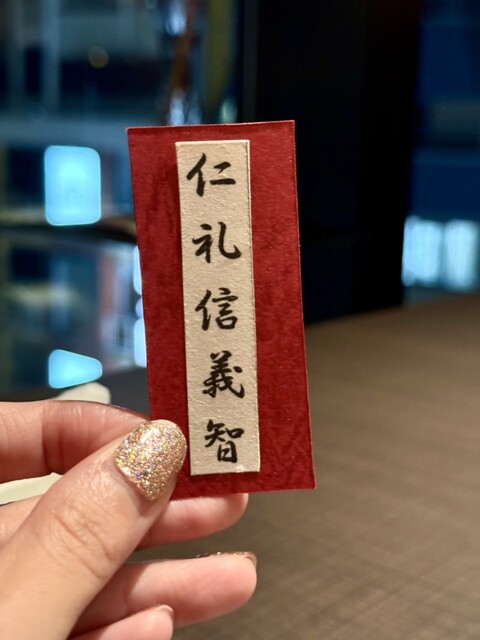 仁礼信義智